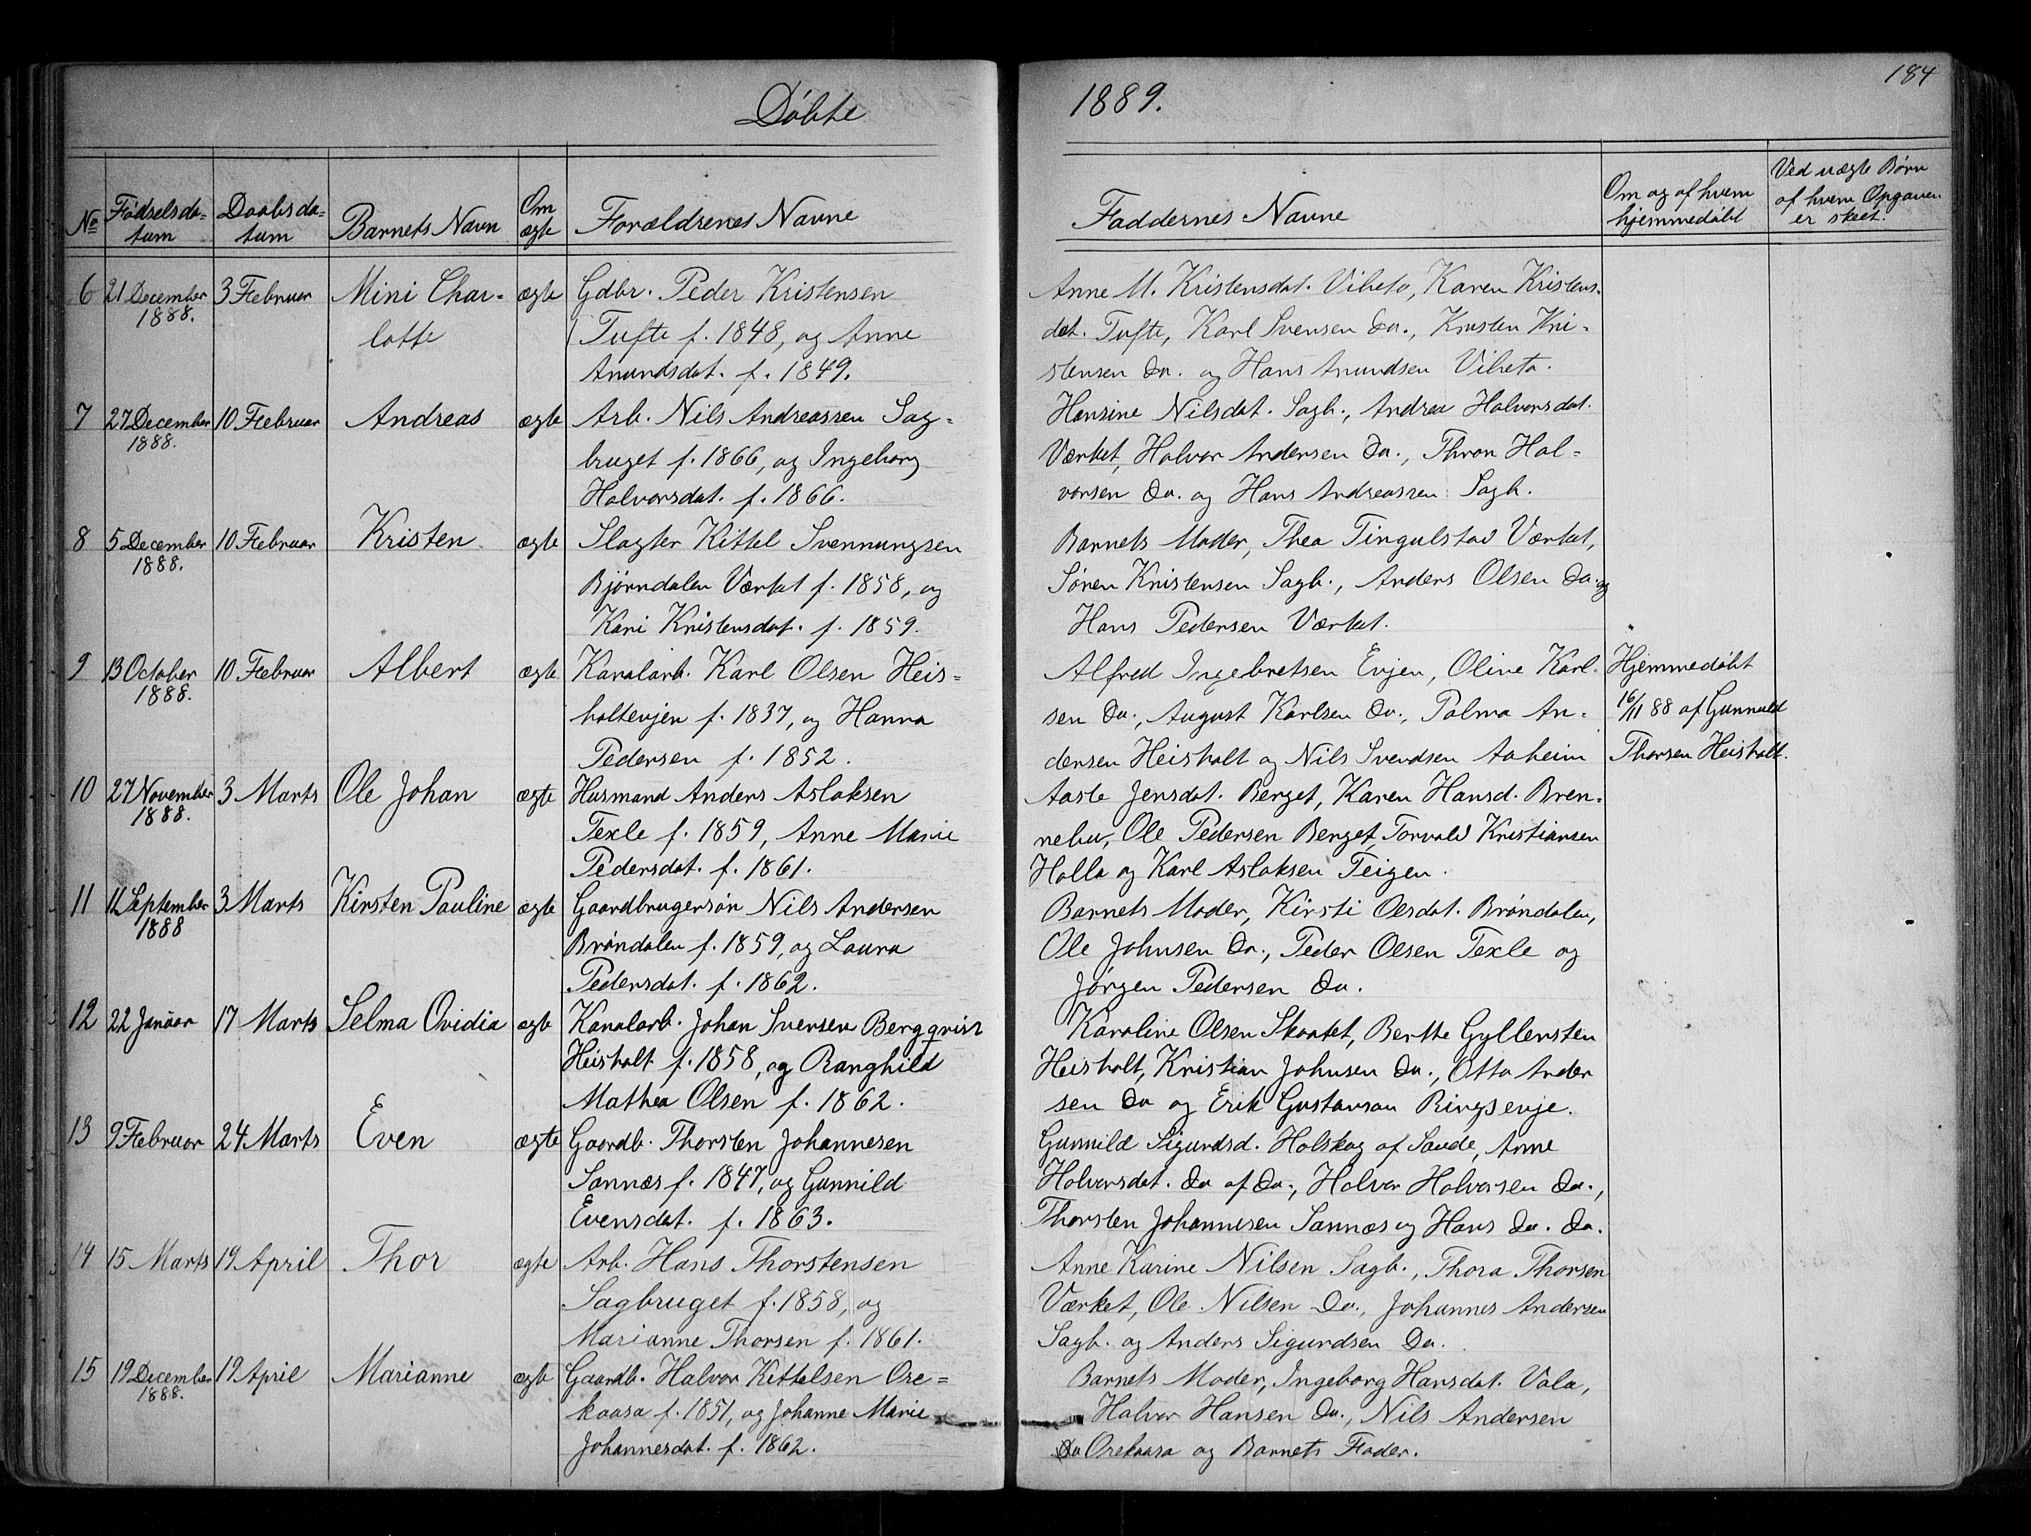 184
Døbte 1889.
No
Fødselsda-
tum
Daabsda-
tum
Barnets Navn
Om
ægte
Forældrenes Navne
Faddernes Navne
Om og af hvem
hjemmedøbt
Ved uægte Børn
af hvem Opgaven
er skeet.
6 21 December 3 Februar Mini Char- ægte Gdbr. Peder Kristensen
1888. lotte Tufte f. 1848, og Anne
Anundsdat. f. 1849.
Anne M. Kristensdat. Viheto, Karen Kristens-
dat. Tufte, Karl Svensen Do., Kristen Kri-
stensen Do. og Hans Anundsen Viheto.
7 27 December 10 Februar Andreas ægte Arb. Nils Andreassen Sag-
1888. bruget f. 1866, og Ingeborg
Halvorsdat. f. 1866.
Hansine Nilsdat. Sagb., Andrea Halvorsdat.
Værket, Halvor Andersen Do., Thron Hal-
vorsen Do. og Hans Andreassen Sagb.
8 5 December 10 Februar Kristen ægte Slagter Kittel Svennungsen
1888. Bjørndalen Værket f. 1858, og
Kari Kristensdat. f. 1859.
Barnets Moder, Thea Tingulstad Værket,
Søren Kristensen Sagb., Anders Olsen Do. og
Hans Pedersen Værket.
9 13 October 10 Februar Albert ægte Kanalarb. Karl Olsen Heis-
1888. holtevjen f. 1837, og Hanna
Pedersen f. 1852.
Alfred Ingebretsen Evjen, Oline Karl-
sen Do., August Karlsen Do., Palma An-
dersen Heisholt og Nils Svendsen Aaheim
Hjemmedøbt
16/11 88 af Gunnuld
Thorsen Heisholt.
10 27 November 3 Marts Ole Johan ægte Husmand Anders Aslaksen
1888. Texle f. 1859, Anne Marie
Pedersdat. f. 1861.
Aaste Jensdat. Berget, Karen Hansd. Bren-
nebu, Ole Pedersen Berget, Torvald Kristiansen
Holla og Karl Aslaksen Teigen.
11 11 September 3 Marts Kirsten Pauline ægte Gaardbrugersøn Nils Andersen
1888 Brøndalen f. 1859, og Laura
Pedersdat. f. 1862.
Barnets Moder, Kirsti Olsdat. Brøndalen,
Ole Johnsen Do., Peder Olsen Texle og
Jørgen Pedersen Do.
12 22 Januar 17 Marts Selma Ovidia ægte Kanalarb. Johan Svensen Bergqvist
Heisholt f. 1858, og Ranghild
Mathea Olsen f. 1862.
Karoline Olsen Skaatet, Berthe Gyllensten
Heisholt, Kristian Johnsen Do., Otto Ander
sen Do og Erik Gustavson Ringsevje.
13 9 Februar 24 Marts Even ægte Gaardb. Thorsten Johannesen
Sannæs f. 1847, og Gunnild
Evensdat. f. 1863.
Gunnild Sigurdsd. Holskog af Saude, Anne
Halvorsdat. Do af Do., Halvor Halvorsen Do.,
Thorsten Johannesen Sannæs og Hans Do. Do.
14 15 Marts 19 April Thor ægte Arb. Hans Thorstensen
Sagbruget f. 1858, og
Marianne Thorsen f. 1861.
Anne Karine Nilsen Sagb., Thora Thorsen
Værket, Ole Nilsen Do., Johannes Andersen
Sagb. og Anders Sigurdsen Do.
15 19 December 19 April Marianne ægte Gaardb. Halvor Kittelsen Ore-
1888. kaasa f. 1851, og Johanne Marie
Johannesdat. f. 1862.
Barnets Moder, Ingeborg Hansdat. Vala,
Halvor Hansen Do., Nils Andersen
Do Orekaasa og Barnets Fader.